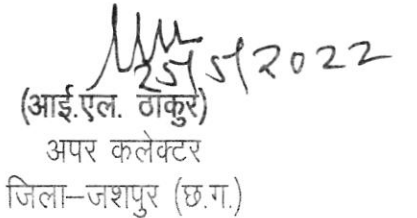 25/5/2022
(आई.एल. ठाकुर)
अपर कलेक्टर
जिला–जशपुर (छ.ग.)